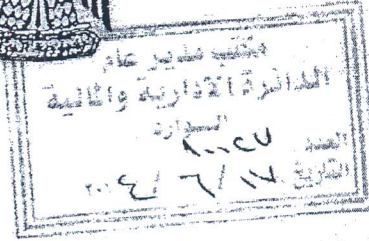 مكتب مدير عام
الدائرة الادارية والمالية
الواردة
العدد
التاريخ ١٧ / ٦ / ٢٠٢٤